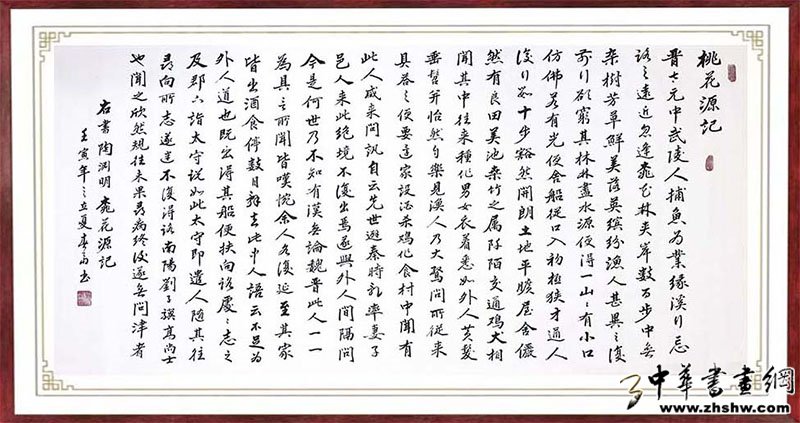 桃花源記
晉太元中武陵人捕魚为業緣溪行忘
路之遠近忽逢桃花林夾岸數百步中無
雜樹芳草鮮美落英繽紛漁人甚異之復
前行欲窮其林林盡水源便得一山山有小口
仿佛若有光便舍船從口入初極狹才通人
復行數十步豁然開朗土地平曠屋舍儼
然有良田美池桑竹之屬阡陌交通鸡犬相
聞其中往来種作男女衣着悉如外人黄髮
垂髫并怡然自樂見漁人乃大驚問所從来
具答之便要還家設酒杀鸡作食村中聞有
此人咸来問訊自云先世避秦時亂率妻子
邑人来此絶境不復出焉遂與外人間隔問
今是何世乃不知有漢無論魏晉此人一一
為具言所聞皆嘆惋余人各復延至其家
皆出酒食停數日辭去此中人語云不足為
外人道也既出得其船便扶向路處處志之
及郡下詣太守說如此太守即遣人隨其往
尋向所志遂迷不復得路南陽劉子驥高尚士
也聞之欣然規往未果尋病終後遂無問津者
右書陶渊明桃花源記
壬寅年之立夏書
中華書畫網
www.zhshw.com